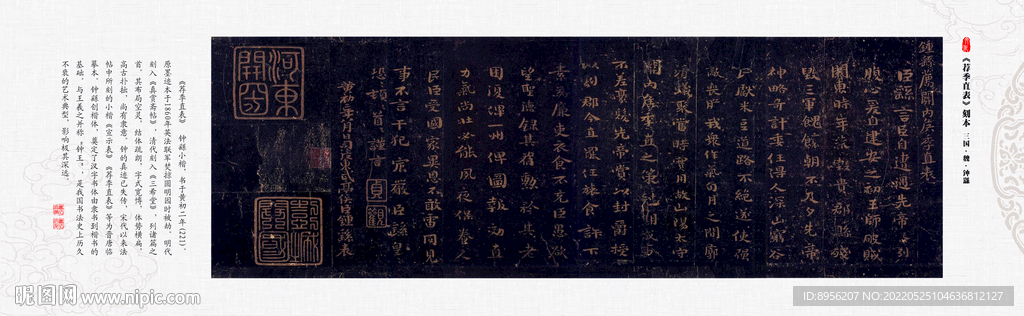 《荐季直表》刻本 三国·魏·钟繇
鍾繇薦關內侯季直表
臣繇言臣自遭遇先帝忝列
腹心爰自建安之初王師破賊
關東時年荒穀貴郡縣殘
毀三軍餽饟朝不及夕先帝
神略奇計委任得人深山窮谷
民獻米豆道路不絕遂使強
敵喪膽我衆作氣旬月之間廓
清蟻聚當時實用故山陽太守
關內侯季直之策剋期成事
不差豪髮先帝賞以封爵授
以劇郡今直罷任旅食許下
素爲廉吏衣食不充臣愚欲
望聖德錄其舊勳矜其老
困復俾一州俾圖報效直
力氣尚壯必能夙夜保養人
民臣受國家異恩不敢雷同見
事不言干犯宸嚴臣繇皇
恐頓首謹言
貞觀
黃初二年八月日司徒東武亭侯臣鍾繇表
河東
開國
《荐季直表》 钟繇小楷,书于黄初二年(221),
原墨迹本于1860年英法联军焚掠圆明园时被劫,明代
刻入《真赏斋帖》,清代刻入《三希堂》,列诸篇之
首,其布局空灵,结体疏朗,字式宽博,体势横扁,
高古朴拙,尚有隶意,钟的真迹已失传,宋代以来法
帖中所刻的小楷《宣示表》《荐季直表》等为晋唐临
摹本。钟繇创楷体,奠定了汉字书体由隶书到楷书的
基础,与王羲之并称"钟王",是我国书法史上历久
不衰的艺术典型,影响极其深远。
昵图网 www.nipic.com
ID:8956207 NO:20220525104636812127